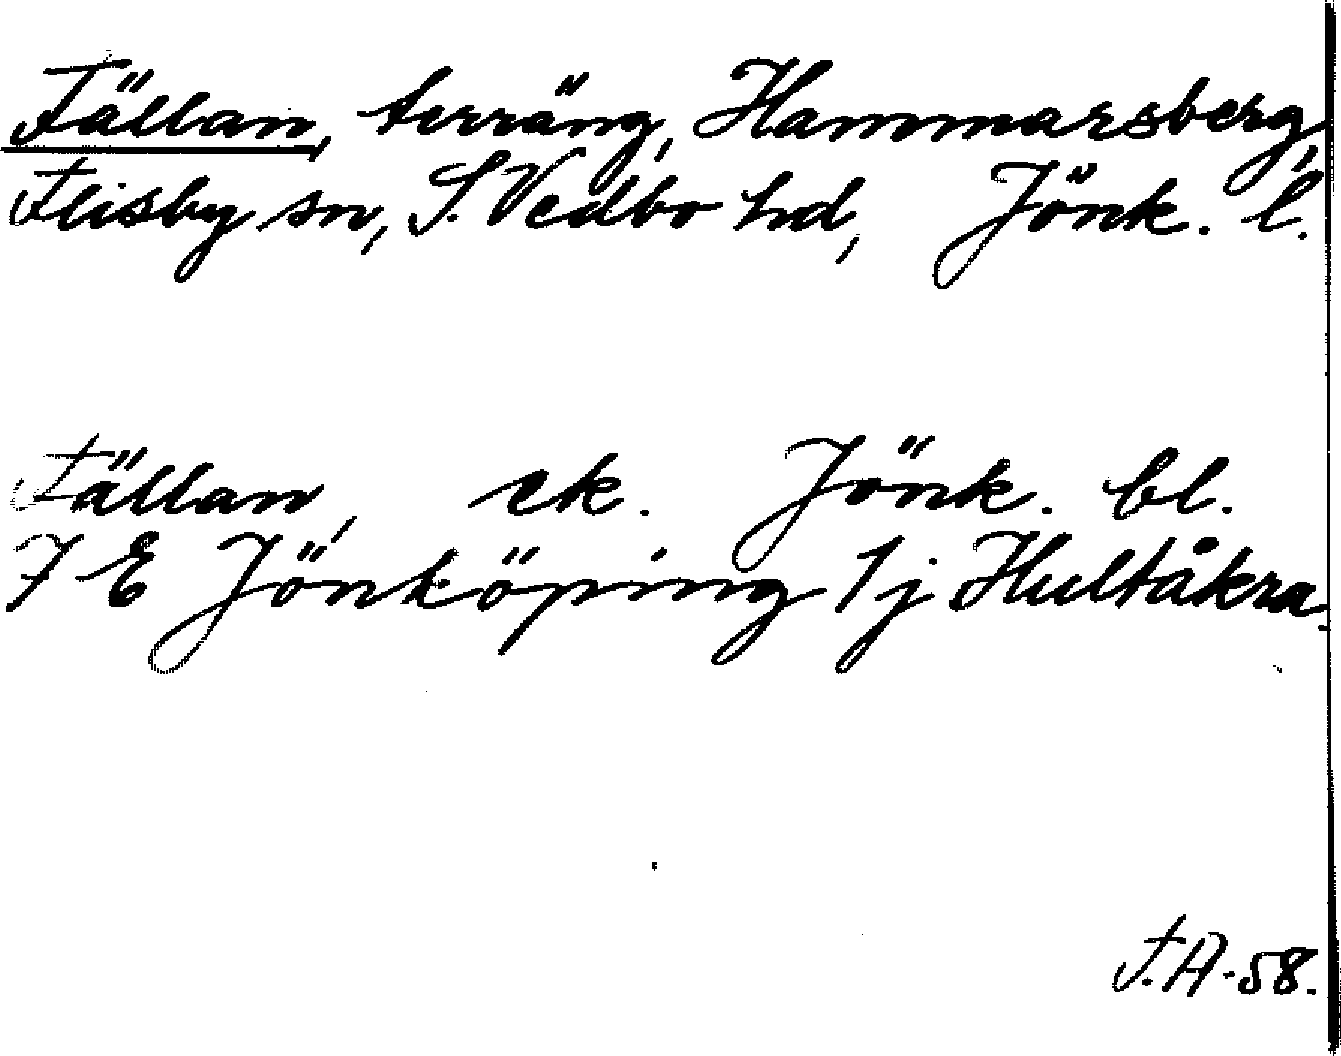 Fällan, terräng, Hammarsberg,
Flisby sn, S. Vedbo hd, Jönk. l.
Fällan, ek. Jönk. bl.
7 E Jönköping 1j Hultåkra.
F.A-58.